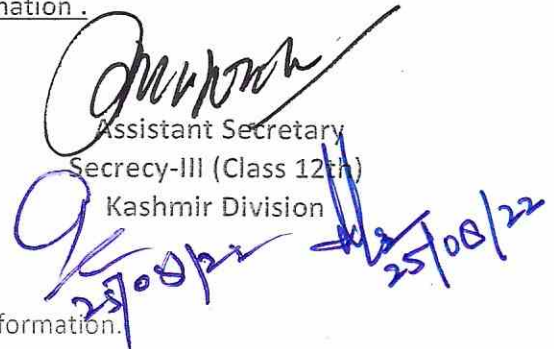 mation .
Assistant Secretary
Secrecy-III (Class 12th)
Kashmir Division
25/08/22
25/08/22
formation.